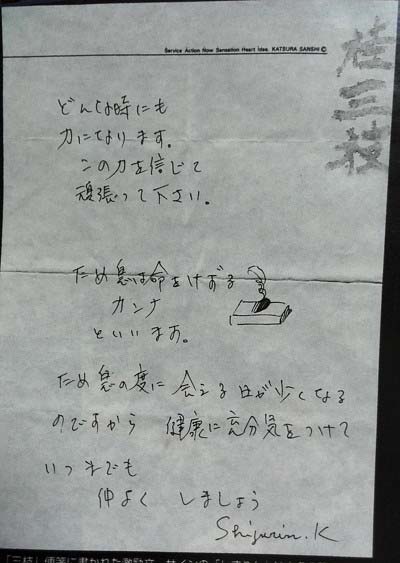 Service Action Now Sensation Heart Idea. KATSURA SANSHI ©
桂三枝
どんな時にも
力になります。
この力を信じて
頑張って下さい。
ため息は命をけずる
カンナ
といいます。
ため息の度に 会える日が少くなる
のですから 健康に充分気をつけて
いつまでも
仲よく しましょう
Shigurin.K